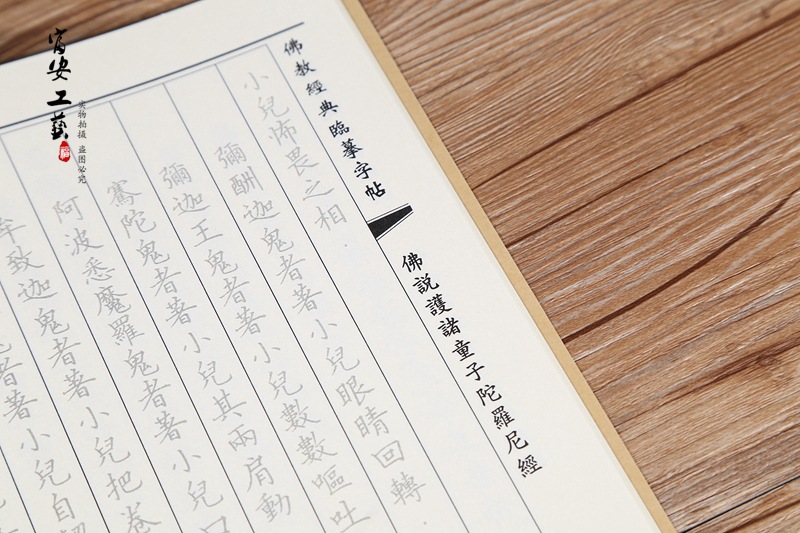 佛教經典臨摹字帖
佛說護諸童子陀羅尼經
小兒怖畏之相.
彌酬迦鬼者著小兒眼睛回轉.
彌迦王鬼者著小兒數數嘔吐
騫陀鬼者著小兒其兩肩動
阿波悉魔羅鬼者著小兒口
牟致迦鬼者著小兒把卷
者著小兒自
富安工藝
实物拍摄 盗图必究